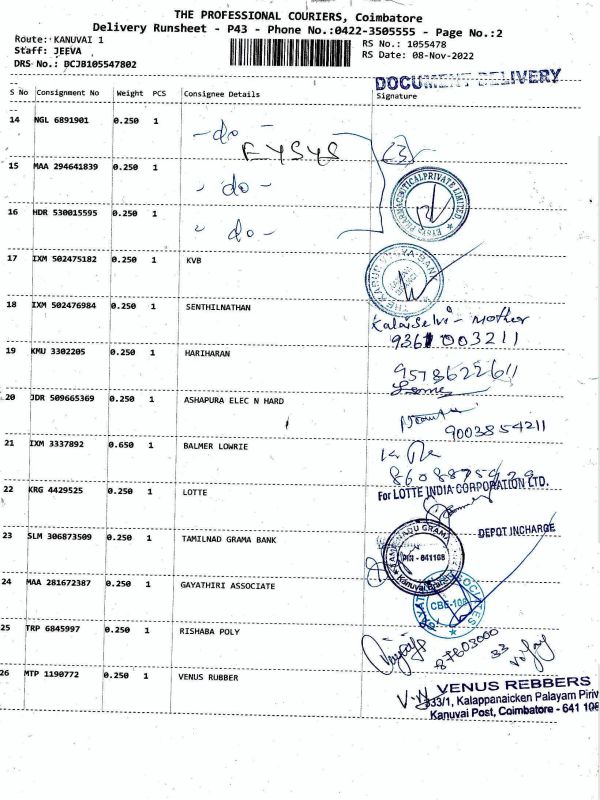 THE PROFESSIONAL COURIERS, Coimbatore
Delivery Runsheet - P43 - Phone No.:0422-3505555 - Page No.:2
Route: KANUVAI 1
Staff: JEEVA
DRS No.: BCJB105547802
RS No.: 1055478
RS Date: 08-Nov-2022
DOCUMENT DELIVERY
S No Consignment No Weight PCS Consignee Details Signature
14 NGL 6891901 0.250 1 - do -
EYSYS (3)
15 MAA 294641839 0.250 1 - do -
16 HDR 530015595 0.250 1 " do -
17 IXM 502475182 0.250 1 KVB
18 IXM 502476984 0.250 1 SENTHILNATHAN
KalaiSelvi - Mother
93611003211
19 KMU 3302205 0.250 1 HARIHARAN
9578622611
20 JDR 509665369 0.250 1 ASHAPURA ELEC N HARD
9003854211
21 IXM 3337892 0.650 1 BALMER LOWRIE
22 KRG 4429525 0.250 1 LOTTE
For LOTTE INDIA CORPORATION LTD.
DEPOT INCHARGE
23 SLM 306873509 0.250 1 TAMILNAD GRAMA BANK
PIN - 641108
Kanuvai Branch
24 MAA 281672387 0.250 1 GAYATHIRI ASSOCIATE
25 TRP 6845997 0.250 1 RISHABA POLY
87603000
33
26 MTP 1190772 0.250 1 VENUS RUBBER
VENUS REBBERS
333/1, Kalappanaicken Palayam Piriv
Kanuvai Post, Coimbatore - 641 108